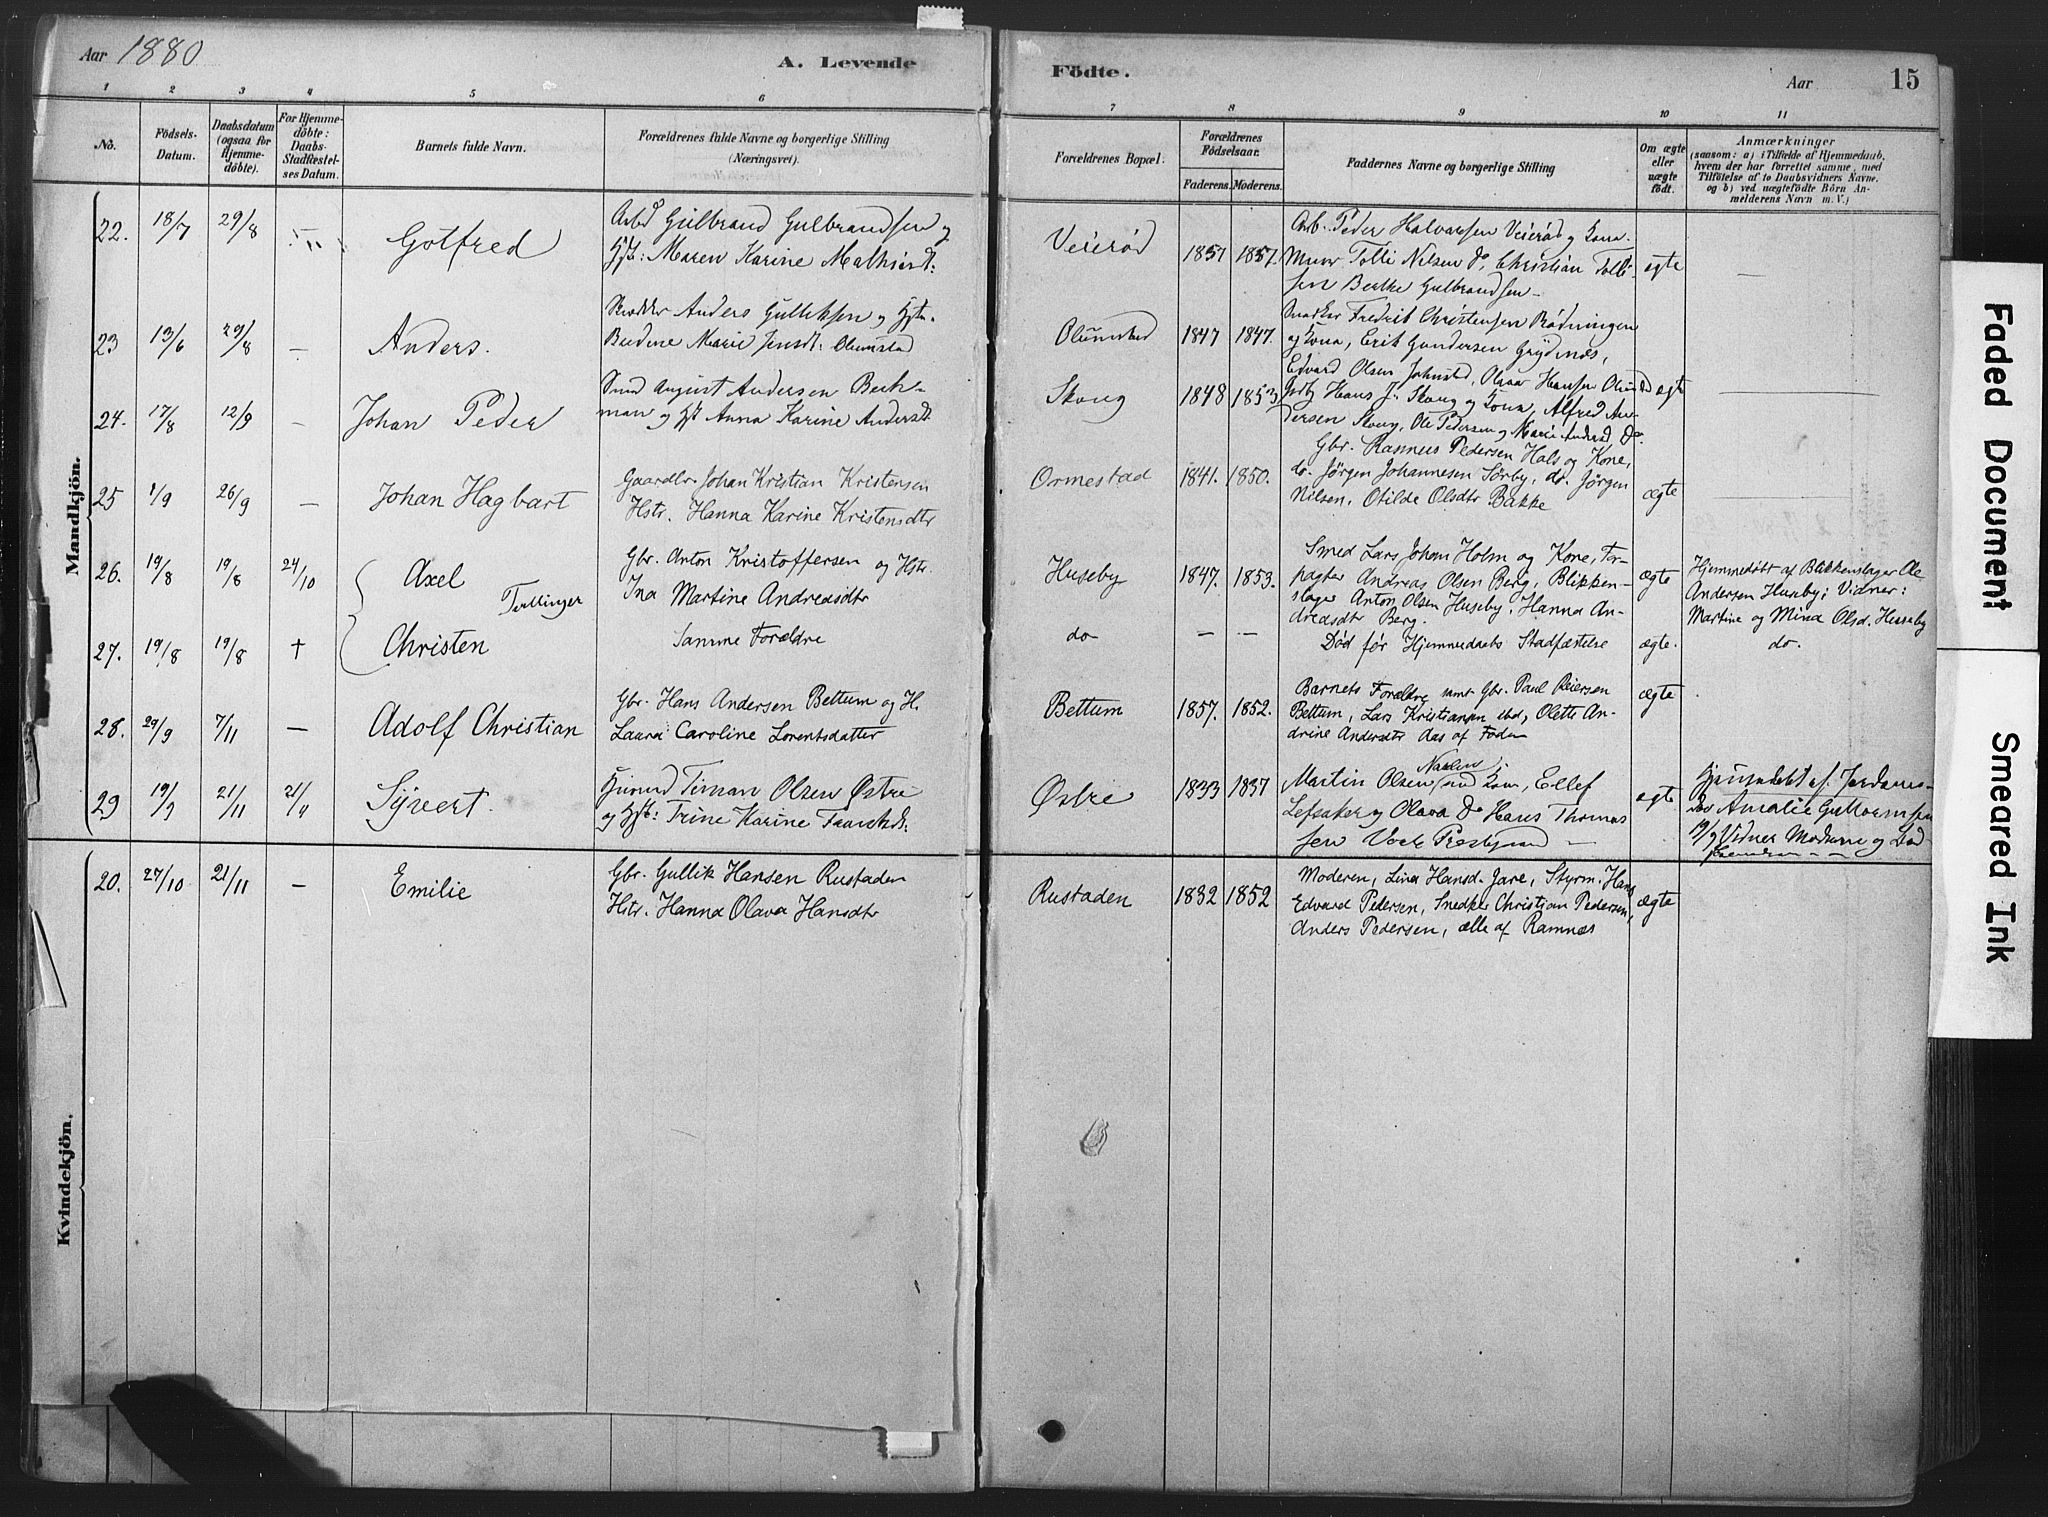 Aar 1880
A. Levende
Födte.
Aar
15
1 2 3 4 5 6 7 8 9 10 11
No.
Födsels-
Datum.
Daabsdatum
(ogsaa for
Hjemme-
döbte).
For Hjemme-
döbte:
Daabs-
Stadfæstel-
ses Datum.
Barnets fulde Navn.
Forældrenes fulde Navne og borgerlige Stilling
(Næringsvei).
Forældrenes Bopæl.
Forældrenes
Födselsaar.
Faderens. Moderens.
Faddernes Navne og borgerlige Stilling
Om ægte
eller
uægte
födt.
Anmærkninger
(saasom: a) i Tilfælde af Hjemmedaab,
hvem der har forrettet samme, med
Tilföielse af to Daabsvidners Navne,
og b) ved uægtefödte Börn An-
melderens Navn m. V.)
Mandkjön.
22. 18/7 29/8
Gotfred
Arbd Gulbrand Gulbrandsen og
Hst: Maren Karine Mathisd:
Veierød
1857 1857.
Arb. Peder Halvorsen Veierød og Kona.
Murer Tolli Nilsen do, Christian Tolli-
sen Berthe Gulbrandsen —
ægte
—
23 13/6 29/8 —
Anders.
Skrædder Anders Gulliksen og Hst.
Marie Jensdt: Olumstad
Olumstad
1847 1847.
Snedker Fredrik Christensen Rödningen
og Kona, Erik Gundersen Grydnæs,
Edvard Olsen, Olava Hansen
24. 17/8 12/9 —
Johan Peder
Smed August Andersen Beck-
man og Hst Anna Karine Andersdt
Skoug
1848 1853
Hans J. Skoug og Kona, Alfred An-
dersen Skoug, Ole Pedersen og Marie Andersd do.
ægte
—
25 1/9 26/9 —
Johan Hagbart
Gaardbr. Johan Kristian Kristensen
Hstr. Hanna Karine Kristensdtr
Ormestad
1841. 1850.
Gbr. Rasmus Pedersen Hals og Kone,
do. Jørgen Johannesen Sörby, do. Jörgen
Nilsen, Otilde Olsdtr Bakke
ægte
—
26. 19/8 19/8 24/10
Axel
Tvillinger
Gbr. Anton Kristoffersen og Hstr.
Ina Martine Andreasdtr
Huseby
1847. 1853.
Smed Lars Johan Holm og Kone, For-
pagter Andreas Olsen Berg, Blikken-
slager Anton Olsen Huseby, Hanna An-
dreasdtr Berg.
ægte
Hjemmedøbt af Blikkenslager Ole
Andersen Huseby; Vidner:
Martine og Mina Olsd. Huseby
27. 19/8 19/8 †
Christen
Samme Forældre
do — —
Død før Hjemmedaabs Stadfæstelse
ægte.
do.
28. 29/9 7/11 —
Adolf Christian
Gbr. Hans Andersen Bettum og H.
Laura Caroline Lorentsdatter
Bettum
1857. 1852.
Barnets Forældre samt Gbr. Paul Reiersen
Bettum, Lars Kristiansen ibd, Olette An-
drine Andersdtr das af Foden
ægte
29 19/9 21/11 21/11
Syvert.
Timan Olsen Østre
og Hst: Trine Karine
Østre
1833 1837
Martin Olsen Kona, Ellef
Lefsaker og Olava do Hans Thomas
sen
ægte
Hjemmedøbt af Jordemo-
der Amalie Guttormsen
19/9 Vidner Moderen og
Kvindekjön.
20. 27/10 21/11 —
Emilie
Gbr. Gullik Hansen Rustaden
Hstr. Hanna Olava Hansdtr
Rustaden
1832 1852
Moderen, Lina Hansd. Jare, Styrm. Hans
Edvard Pedersen, Snedker Christian Pedersen,
Anders Pedersen, alle af Ramnæs
ægte
Faded Document
Smeared Ink